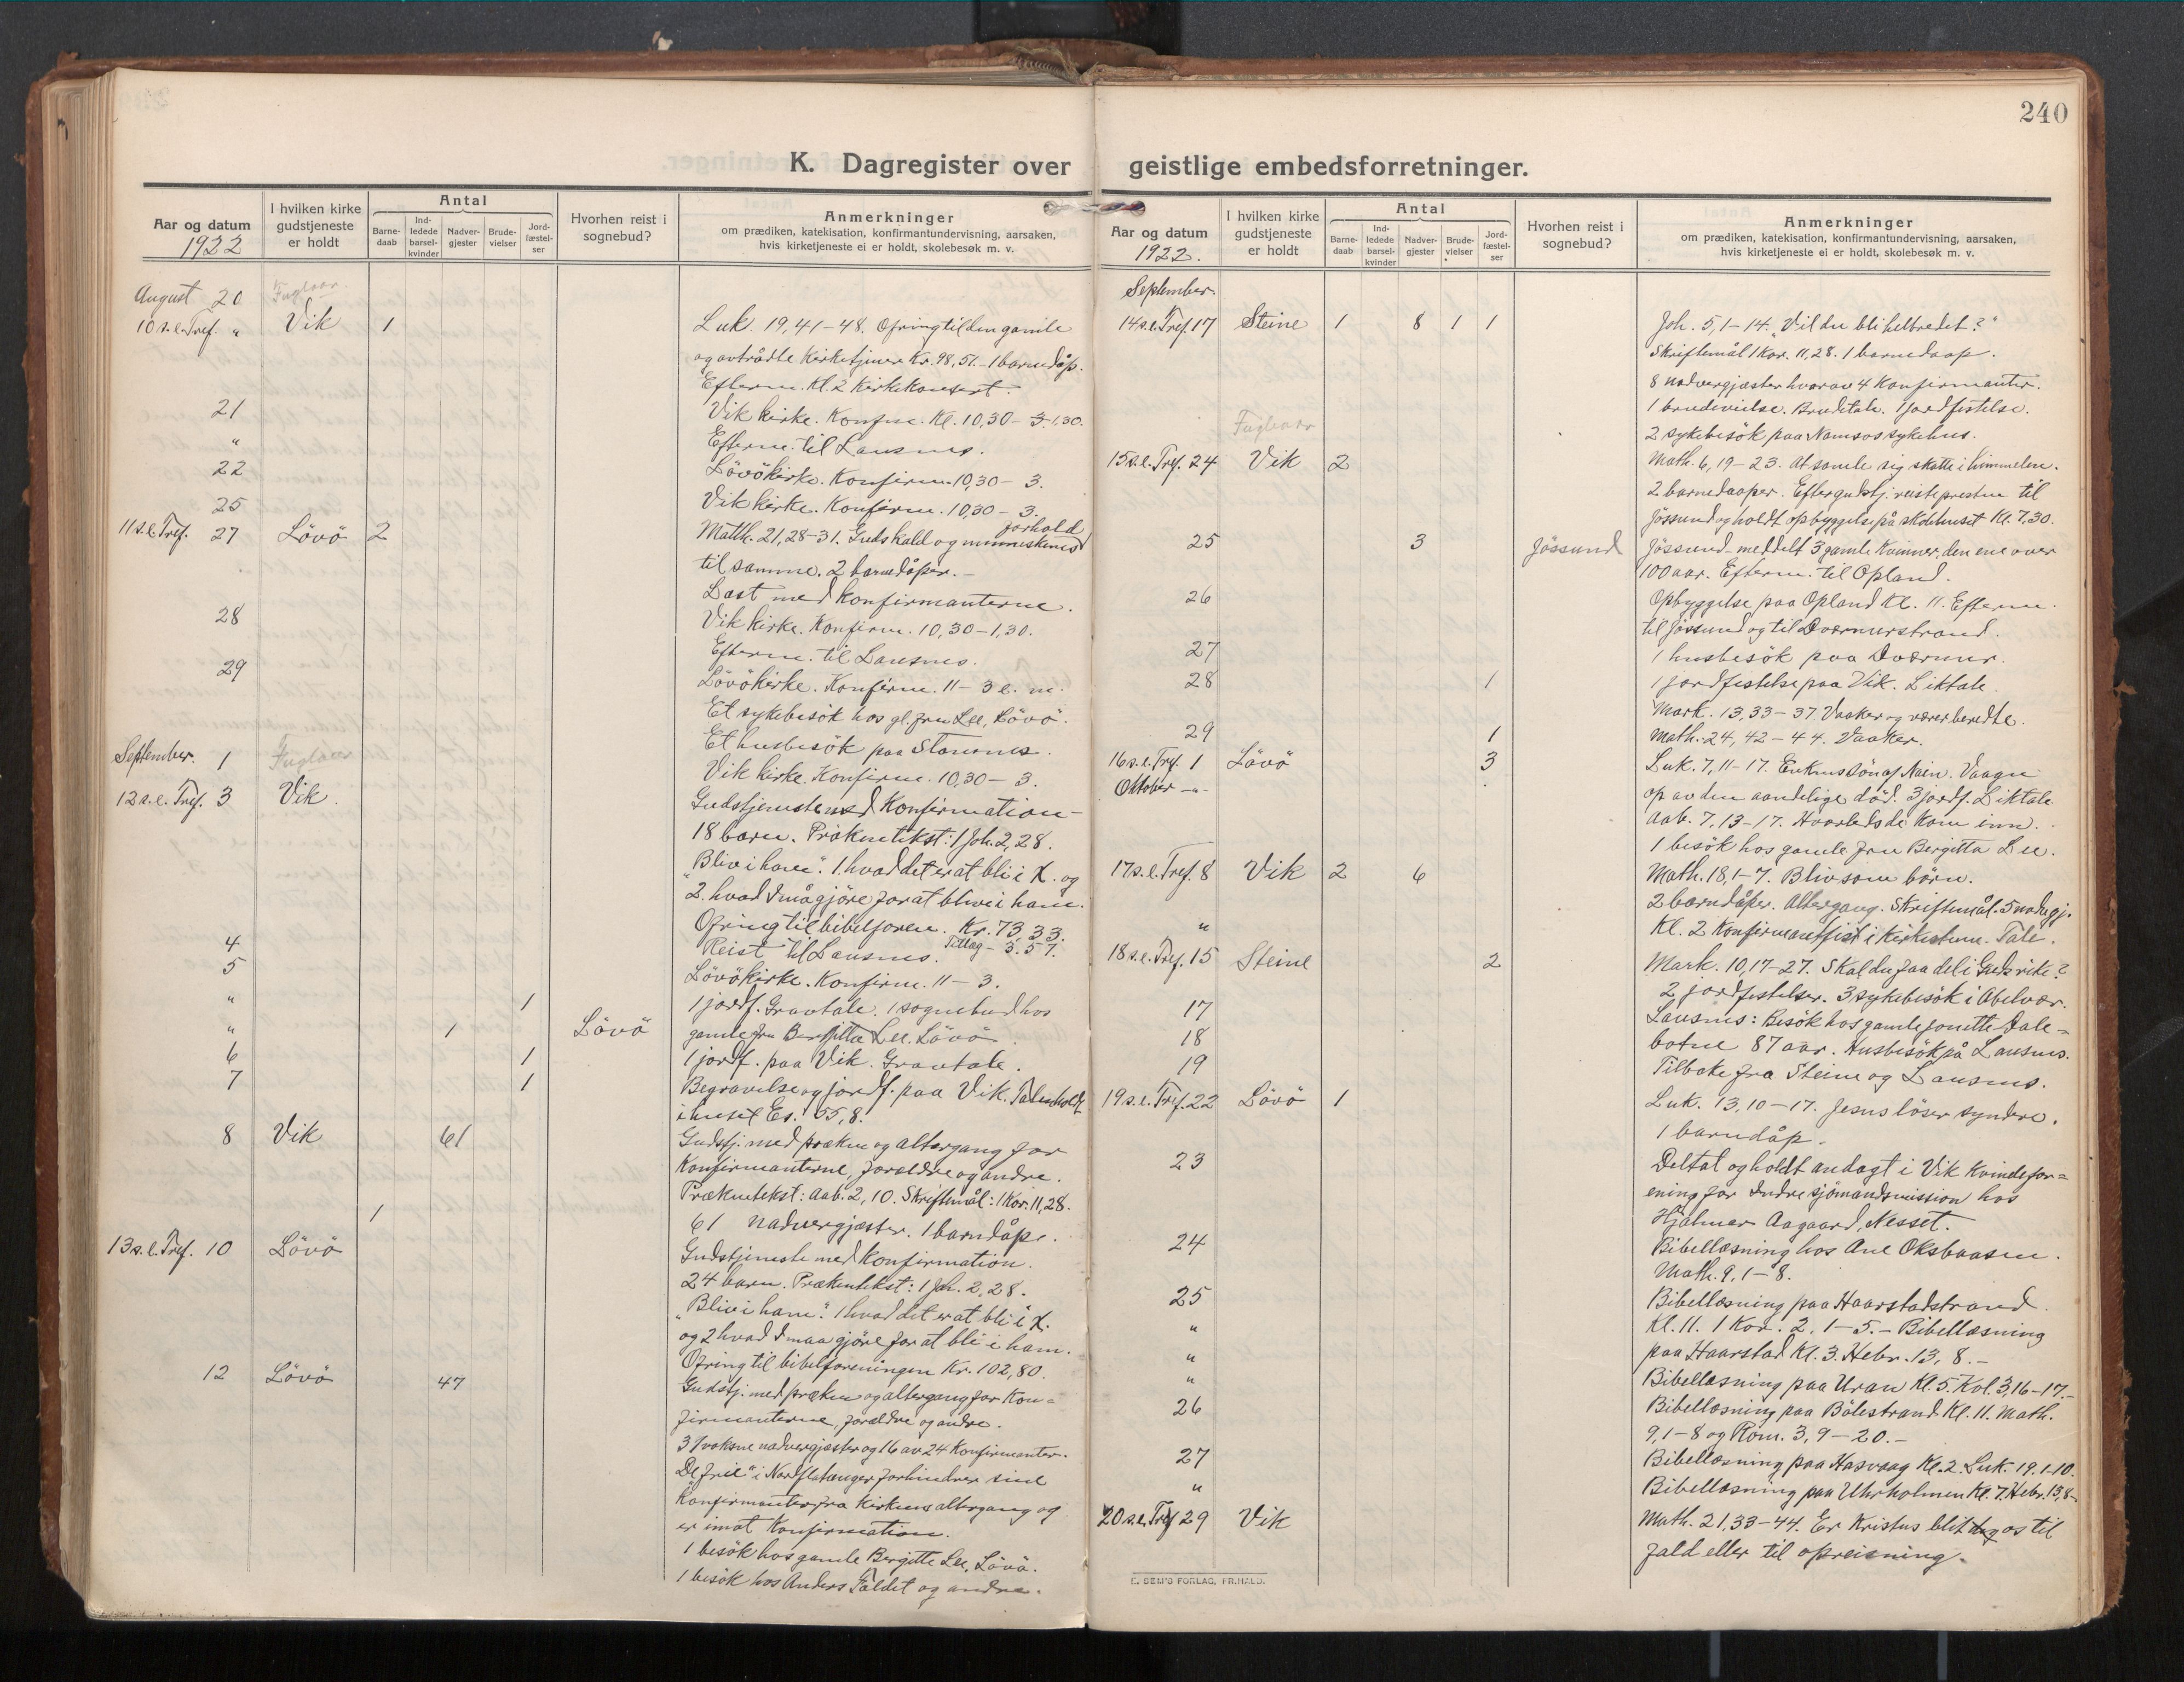 240
K. Dagregister over geistlige embedsforretninger.
Aar og datum
1922
I hvilken kirke gudstjeneste er holdt
Antal
Barne-daab
Ind-ledede barsel-kvinder
Nadver-gjester
Brude-vielser
Jord-fæstel-ser
Hvorhen reist i sognebud?
Anmerkninger
om prædiken, katekisation, konfirmantundervisning, aarsaken,
hvis kirketjeneste ei er holdt, skolebesøk m. v.
August 20 Fuglaar
10 s.e. Tref. " Vik 1 Luk. 19,41-48. Ofring til den gamle
og avtrådte Kirketjener Kr. 98,51. - 1 barnedåp.
Efterm. Kl. 2 Kirkekonsert.
21 Vik kirke. Konfirm. Kl. 10,30 - 1,30.
" Efterm. til Lausnes.
22 Lövö kirke. Konfirm. 10,30 - 3.
25 Vik kirke. Konfirm. 10,30 - 3.
11 s.e. Tref. 27 Lövö 2 Matth. 21,28-31. Guds kald og menneskenes forhold
til samme. 2 barnedåper. -
Læst med konfirmanterne.
28 Vik kirke. Konfirm. 10,30-1,30.
Efterm. til Lausnes.
29 Lövö kirke. Konfirm. 11 - 3 e. m.
Et sykebesök hos gl. fru Lee, Lövö.
Et husbesök paa
September. 1 Fuglaar Vik kirke. Konfirm. 10,30 - 3.
12 s.e. Tref. 3 Vik. Gudstjeneste med Konfirmation -
18 barn. Prækentekst: 1 Joh. 2,28.
"Bliv i ham". 1. hvad det er at bli i X. og
2. hvad I må gjöre for at blive i ham.
Ofring til bibelforen. Kr. 73 33.
Tillag - 3.57.
4 Reist til Lausnes.
5 Lövö kirke. Konfirm. 11 - 3.
" 1 1 jordf. Gravtale. 1 sognebud hos
" 1 Lövö gamle fru Bergitta Lee. Lövö.
6 1 1 jordf. paa Vik. Gravtale.
7 1 Begravelse og jordf. paa Vik. Tale holdt
i huset Es. 55,8.
8 Vik 61 Gudstj. med præken og altergang for
Konfirmanterne, forældre og andre.
Prækentekst: Aab. 2,10. Skriftemål: 1 Kor. 11,28.
1 61 nadvergjæster. 1 barndåp.
13 s.e. Tref. 10 Lövö Gudstjeneste med konfirmation.
24 barn. Prækentekst: 1 Joh. 2,28.
"Bliv i ham". 1 hvad det er at bli i X.
og 2 hvad I maa gjöre for at bli i ham.
Ofring til bibelforeningen Kr. 102,80.
12 Lövö 47 Gudstj. med præken og altergang for Kon=
firmanterne, forældre og andre.
31 voksne nadvergjæster og 16 av 24 Konfirmanter.
"De frie" i Nordflatanger forhindrer sine
Konfirmanter fra kirkens altergang og
er imot Konfirmation.
1 besök hos gamle Bergitte Lee, Lövö.
1 besök hos Anders Faldet og andre.
Aar og datum
1922.
I hvilken kirke gudstjeneste er holdt
Antal
Barne-daab
Ind-ledede barsel-kvinder
Nadver-gjester
Brude-vielser
Jord-fæstel-ser
Hvorhen reist i sognebud?
Anmerkninger
om prædiken, katekisation, konfirmantundervisning, aarsaken,
hvis kirketjeneste ei er holdt, skolebesøk m. v.
September.
14 s.e. Tref. 17 Steine 1 8 1 1 Joh. 5,1-14. "Vil du bli helbredet?"
Skriftemål 1 Kor. 11,28. 1 barnedaap.
8 nadvergjæster hvorav 4 Konfirmanter.
1 brudevielse. Brudetale. 1 jordfestelse.
Fuglaar 2 sykebesök paa Namsos sykehus.
15 s.e. Tref. 24 Vik 2 Math. 6,19-23. At samle sig skatte i himmelen.
2 barnedaaper. Efter gudstj. reiste presten til
Jössund og holdt opbyggelse på skolehuset Kl. 7,30.
25 3 Jössund Jössund - meddelt 3 gamle kvinner, den ene over
100 aar. Efterm. til Opland.
26 Opbyggelse paa Opland Kl. 11. Efterm.
til Jössund og til Dværnurstrand.
27 1 husbesök paa Dværnur.
28 1 1 jordfestelse paa Vik. Liktale.
Mark. 13,33-37. Vaaker og vær beredte.
29 1 Math. 24,42-44. Vaaker.
16 s.e. Tref. 1 Lövö 3 Luk. 7,11-17. Enkens sön af Nain. Vaagn
Oktober -"- op av den aandelige död. 3 jordf. Liktale
Aab. 7,13-17. Hvorledes de kom inn.
1 besök hos gamle fru Bergitta Lee.
17 s.e. Tref. 8 Vik 2 6 Math. 18,1-7. Bliv som börn.
2 barndåper. Altergang. Skriftemål. 5 nadvgj.
" Kl. 2 Konfirmantfest i Kirkestuen. Tale.
18 s.e. Tref. 15 Steine 2 Mark. 10,17-27. Skal du faa del i Guds rike?
2 jordfestelser. 3 sykebesök i Abelvær.
17 Lausnes: Besök hos gamle Dale=
18 botne 87 aar. Husbesök på Lausnes.
19 Tilbake fra Steine og Lausnes.
19 s.e. Tref. 22 Lövö 1 Luk. 13,10-17. Jesus löser syndere.
1 barndåp.
23 Deltat og holdt andagt i Vik Kvindefor=
ening for Indre sjömandsmission hos
Hjalmar Aagaard, Nesset.
24 Bibellæsning hos Ane Oksbaasen.
Math. 9,1-8.
25 Bibellæsning paa Haarstadstrand.
" Kl. 11. 1 Kor. 2,1-5. - Bibellæsning
" paa Haarstad Kl. 3. Hebr. 13,8. -
" Bibellæsning paa Uran Kl. 5. Kol. 3,16-17. -
26 Bibellæsning paa Bölestrand Kl. 11. Math.
9,1-8 og Rom. 3,9-20. -
27 Bibellæsning paa Hasvaag Kl. 2. Luk. 19.1-10.
" Bibellæsning paa Uhrholmen Kl. 7. Hebr. 13,8-
20 s.e. Tref 29 Vik Math. 21,33-44. Er Kristus blit os til
fald eller til opreisning.
E. SEM'S FORLAG, FR.HALD.